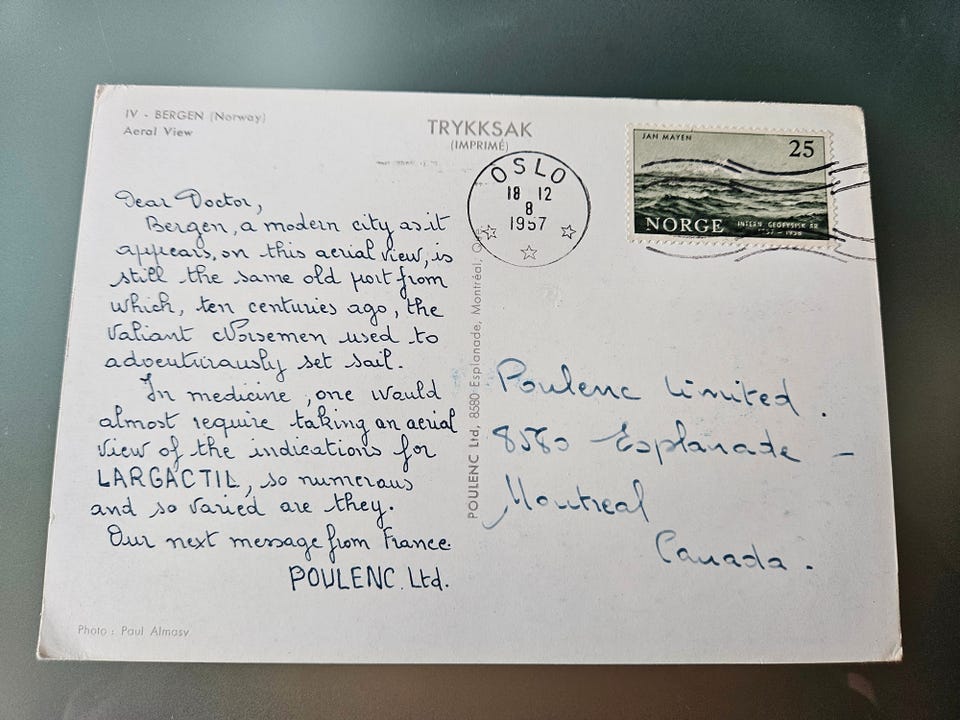 IV - BERGEN (Norway)
Aeral View
TRYKKSAK
(IMPRIMÉ)
OSLO
18 12
8
1957
JAN MAYEN
25
NORGE
INTERN. GEOFYSISK ÅR
1957 - 1958
Dear Doctor,
Bergen, a modern city as it
appears, on this aerial view, is
still the same old port from
which, ten centuries ago, the
valiant Norsemen used to
adventurously set sail.
In medicine, one would
almost require taking an aerial
view of the indications for
LARGACTIL, so numerous
and so varied are they.
Our next message from France.
POULENC. Ltd.
POULENC Ltd, 8580 Esplanade, Montréal, Qué
Poulenc Limited.
8580 Esplanade -
Montreal
Canada.
Photo : Paul Almasy